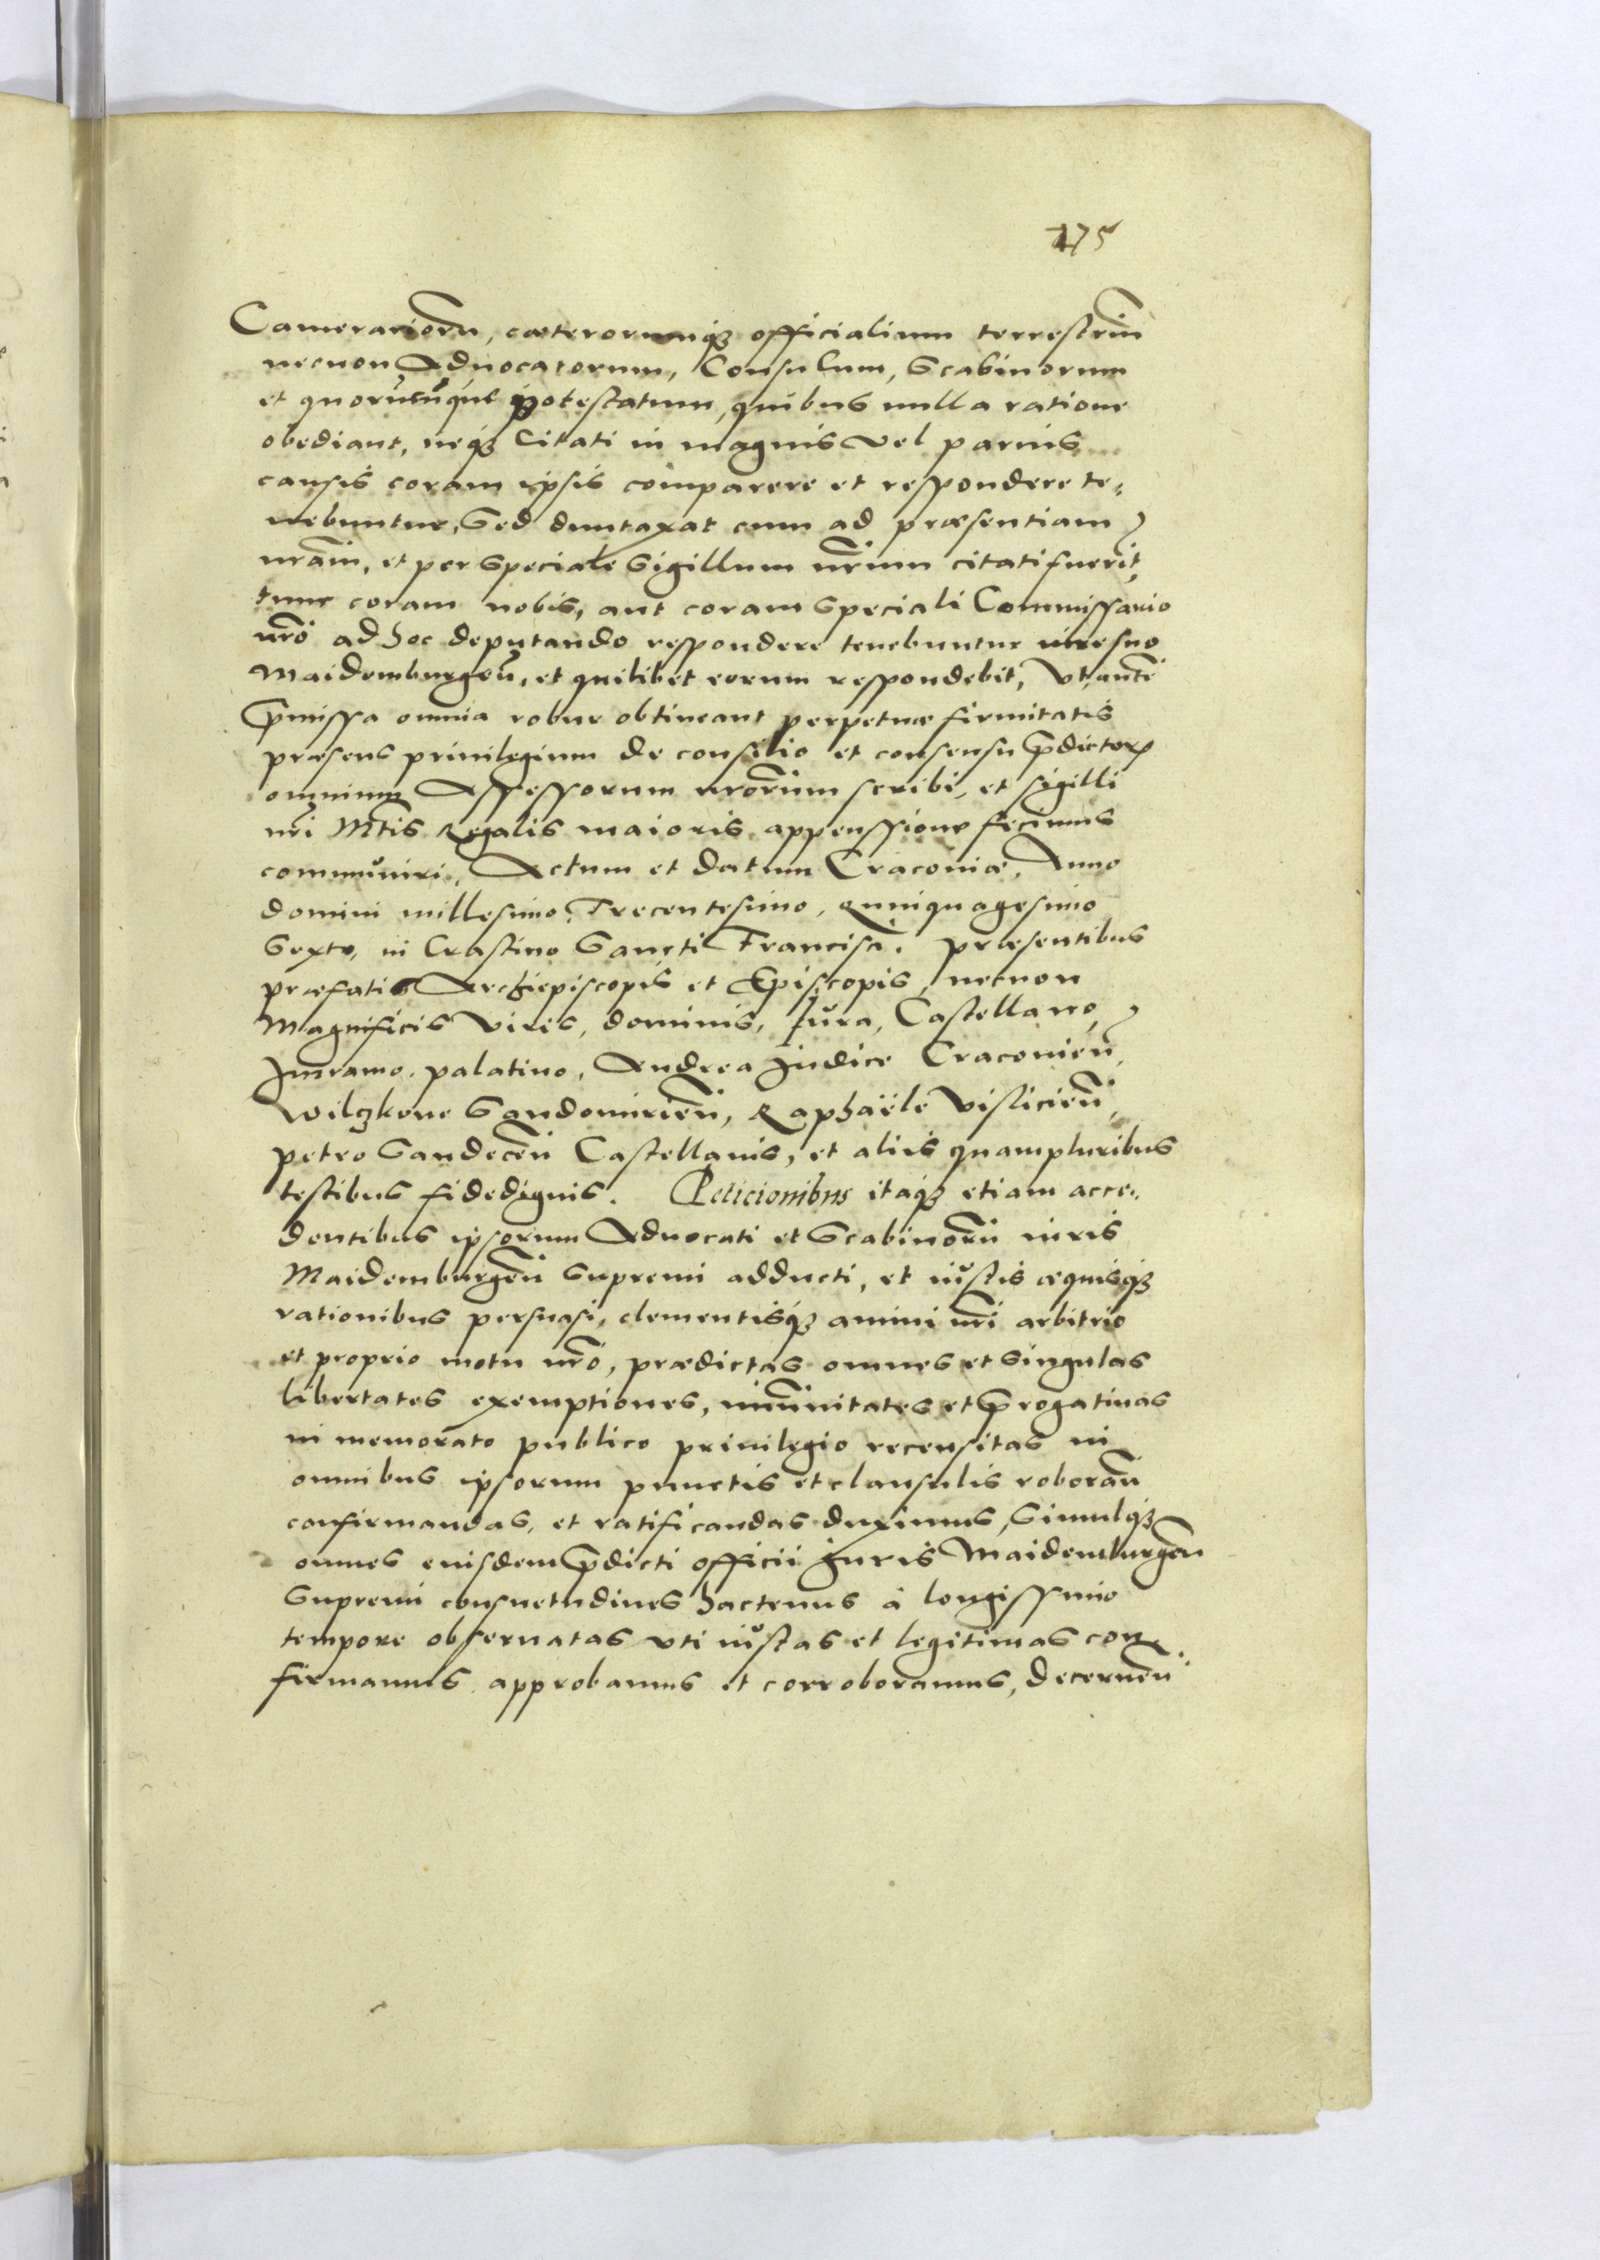 175
Camerariorũ, cæterorumqꝫ officialium terrestriũ
necnon Aduocatorum, Consulum, Scabinorum
et quorũcũque potestatum, quibus nulla ratione
obediant, neqꝫ Citati in magnis vel paruis
causis coram ipsis comparere et respondere te,
nebuntur, Sed duntaxat cum ad præsentiam
nrãm, et per speciale Sigillum nrũm citati fuerĩt,
tunc coram nobis, aut coram speciali Commissario
nrõ ad hoc deputando respondere tenebuntur iure suo
Maidemburgeñ, et quilibet eorum respondebit, Vt autẽ
p̃missa omnia robur obtineant perpetuæ firmitatis
præsens priuilegium de consilio et consensu p̃dictoꝝ
omnium Assessorum nrõrum scribi, et sigilli
nrĩ Mtis Regalis maioris appenssione fecimus
communiri, Actum et datum Cracouiæ, Anno
domini millesimo, Trecentesimo, Quinquagesimo
Sexto, in Crastino Sancti Francisci. præsentibus
præfatis Archiepiscopis et Episcopis, necnon
Magnificis Viris, dominis, Jura, Castellano,
Jmramo, palatino, Andrea Judice Cracouieñ,
Wilczkone Sandomirieñ, Raphaële Visticieñ,
petro Sandeceñ Castellanis, et aliis quampluribus
testibus fidedignis. Peticionibus itaqꝫ etiam acce,
dentibus ipsorum Aduocati et Scabinorũ iuris
Maidemburgeñ Supremi adducti, et iustis æquisqꝫ
rationibus persuasi, clementisqꝫ animi nrĩ arbitrio
et proprio motu nrõ, prædictas omnes et singulas
libertates exemptiones, imũnitates et p̃rogatiuas
in memorato publico priuilegio recensitas in
omnibus ipsorum punctis et clausulis roborañ
confirmandas, et ratificandas duximus, Simulqꝫ
omnes eiusdem p̃dicti officii Juris Maidemburgeñ
Supremi consuetudines hactenus à longissimo
tempore obseruatas vti iustas et legitimas con,
firmamus approbamus et corroboramus, decerneñ